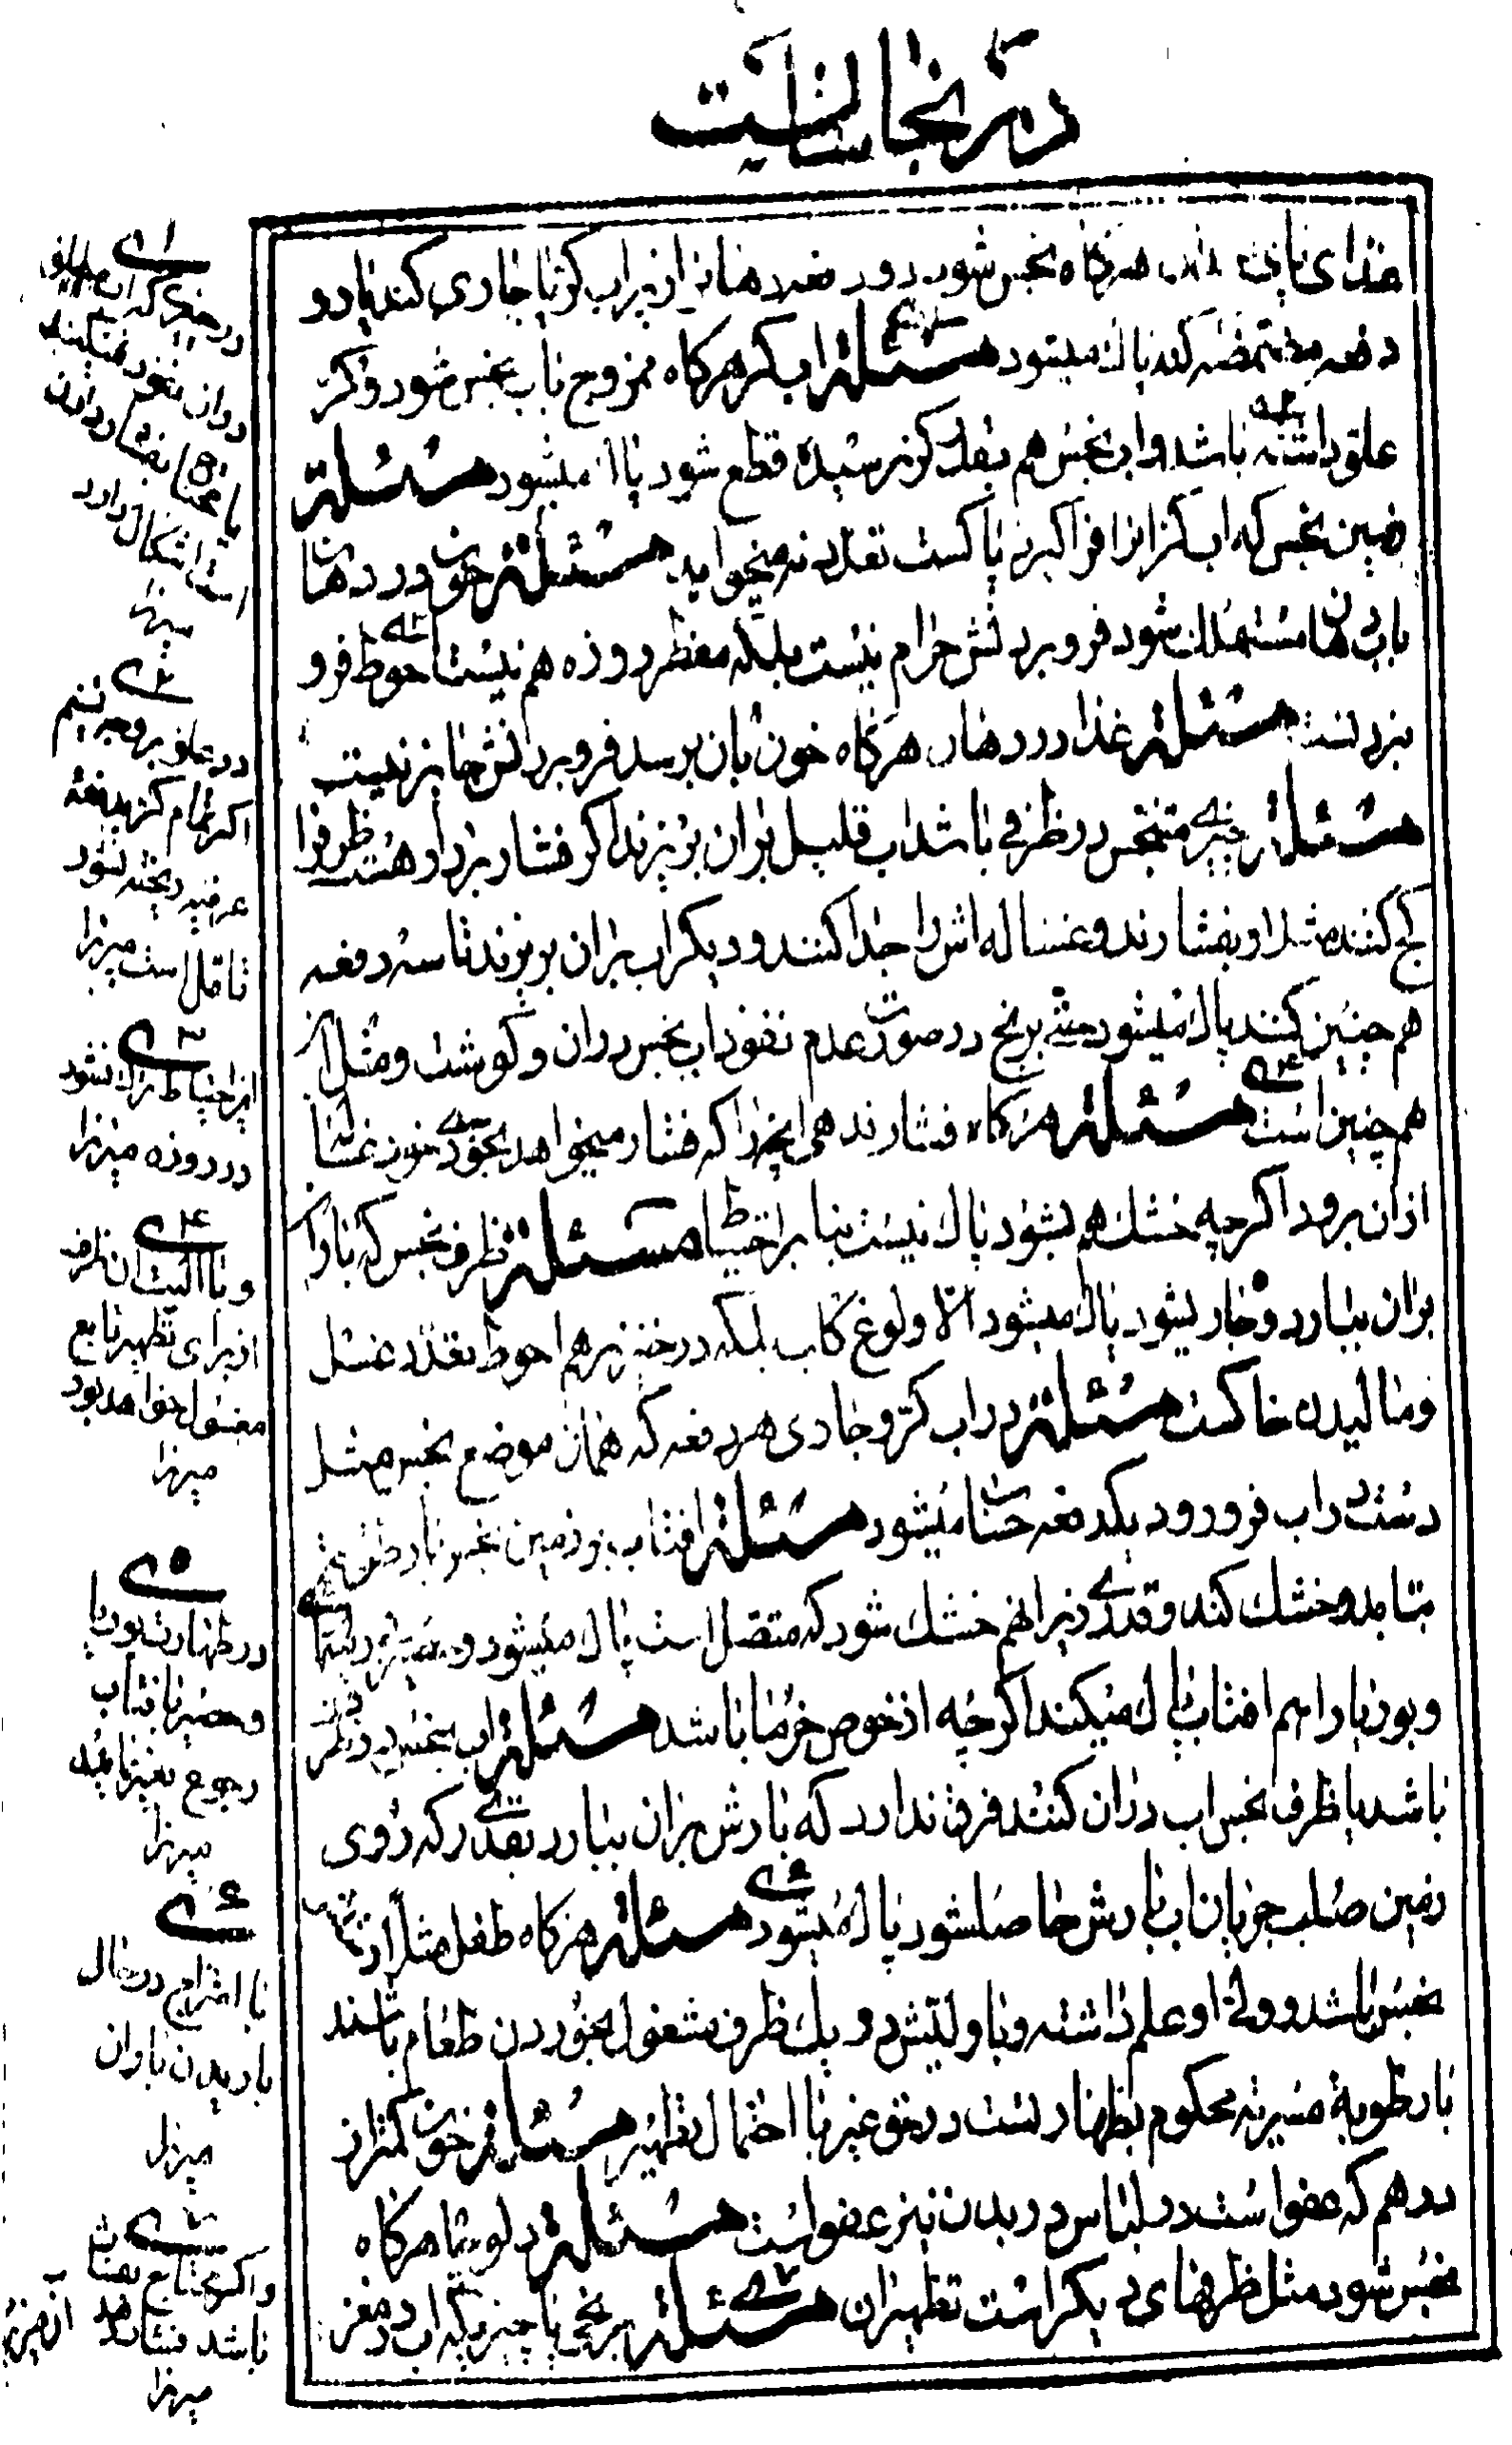 در نجاسات است
غذای هرگاه نجس شود در دهان از زیر آب کر یا جاری کند یا دو
دفعه مضمضه کند پاک میشود مسئلة آب کر هرگاه ممزوج بآب نجس شود و کر
علو داشته باشد و آب نجس هم بقدر کر نرسیده قطع شود پاک میشود مسئلة
زمین نجس که آب کر آنرا فرا گیرد پاکست تعدد نمیخواهد مسئلة خون در دهان
بآب دهان مستهلک شود فرو بردنش حرام نیست بلکه مفطر روزه هم نیست احوط فرو
نبردنست مسئلة غذا در دهان هرگاه خون بآن برسد فرو بردنش جایز نیست
مسئلة چیزی متنجس در ظرفی باشد آب قلیل بر آن بریزند اگر فشار بردار هست ظرف را
کج کنند مثلا و بفشارند و غساله اش را جدا کنند و دیگر آب بر آن بریزند تا سه دفعه
هم چنین کنند پاک میشود برنج در صورت عدم نفوذ آب نجس در آن و گوشت و مثل آن
هم چنین است مسئلة هرگاه فشارند هم چیزی را که فشار میخواهد بخودی خود غساله
از آن برود اگر چه خشک هم بشود پاک نیست بنا بر احتیاط مسئلة ظرف نجس که باران
بر آن ببارد و جاری شود پاک میشود الا ولوغ کلب بلکه در خنزیر هم احوط تعدد غسل
و مالیدن خاکست مسئلة در آب کر و جاری هر دفعه که همان موضع نجس مثل
دست در آب فرو رود یکدفعه حساب میشود مسئلة آفتاب بر زمین نجس با رطوبتی
بتابد و خشک کند و قدری زیر آنهم خشک شود که متصل است پاک میشود و حصیر
و بوریا را هم آفتاب پاک میکند اگر چه از خوص خرما باشد مسئلة آب نجس در ظرف
باشد یا ظرف نجس آب در آن کنند فرق ندارد که بارش بر آن ببارد بقدری که روی
زمین صلب جریان آب بارش حاصل شود پاک میشود مسئلة هرگاه طفل مثلا
نجس باشد و ولی او علم داشته و با ولیش در یک ظرف مشغول بخوردن طعام باشند
با رطوبة مسریه محکوم بطهارتست در حق غیر با احتمال تطهیر مسئلة خون کمتر از
درهم که عفو است در لباس در بدن نیز عفو است مسئلة دلو هرگاه
نجس شود مثل ظرفهای دیگر است تطهیر آن مسئلة برنجی یا چیزیکه آب در مغز
۱
در آن نفوذ نمیکند
اشکال دارد
میرزا
۲
در علو بر وجه تسنیم
اگر تمام کر بدفعه
عرفیه ریخته نشود
تامل است میرزا
۳
این احتیاط ترک نشود
در روزه میرزا
۴
و با آلت آن ظرف
از برای تطهیر تابع
مغسول خواهد بود
میرزا
۵
در طهارت بوریا
و حصیر بآفتاب
رجوع بغیر نمایند
میرزا
۶
با امتزاج در حال
باریدن باران
میرزا
۷
و اگر محتاج بفشار
باشد فشار دهند
میرزا